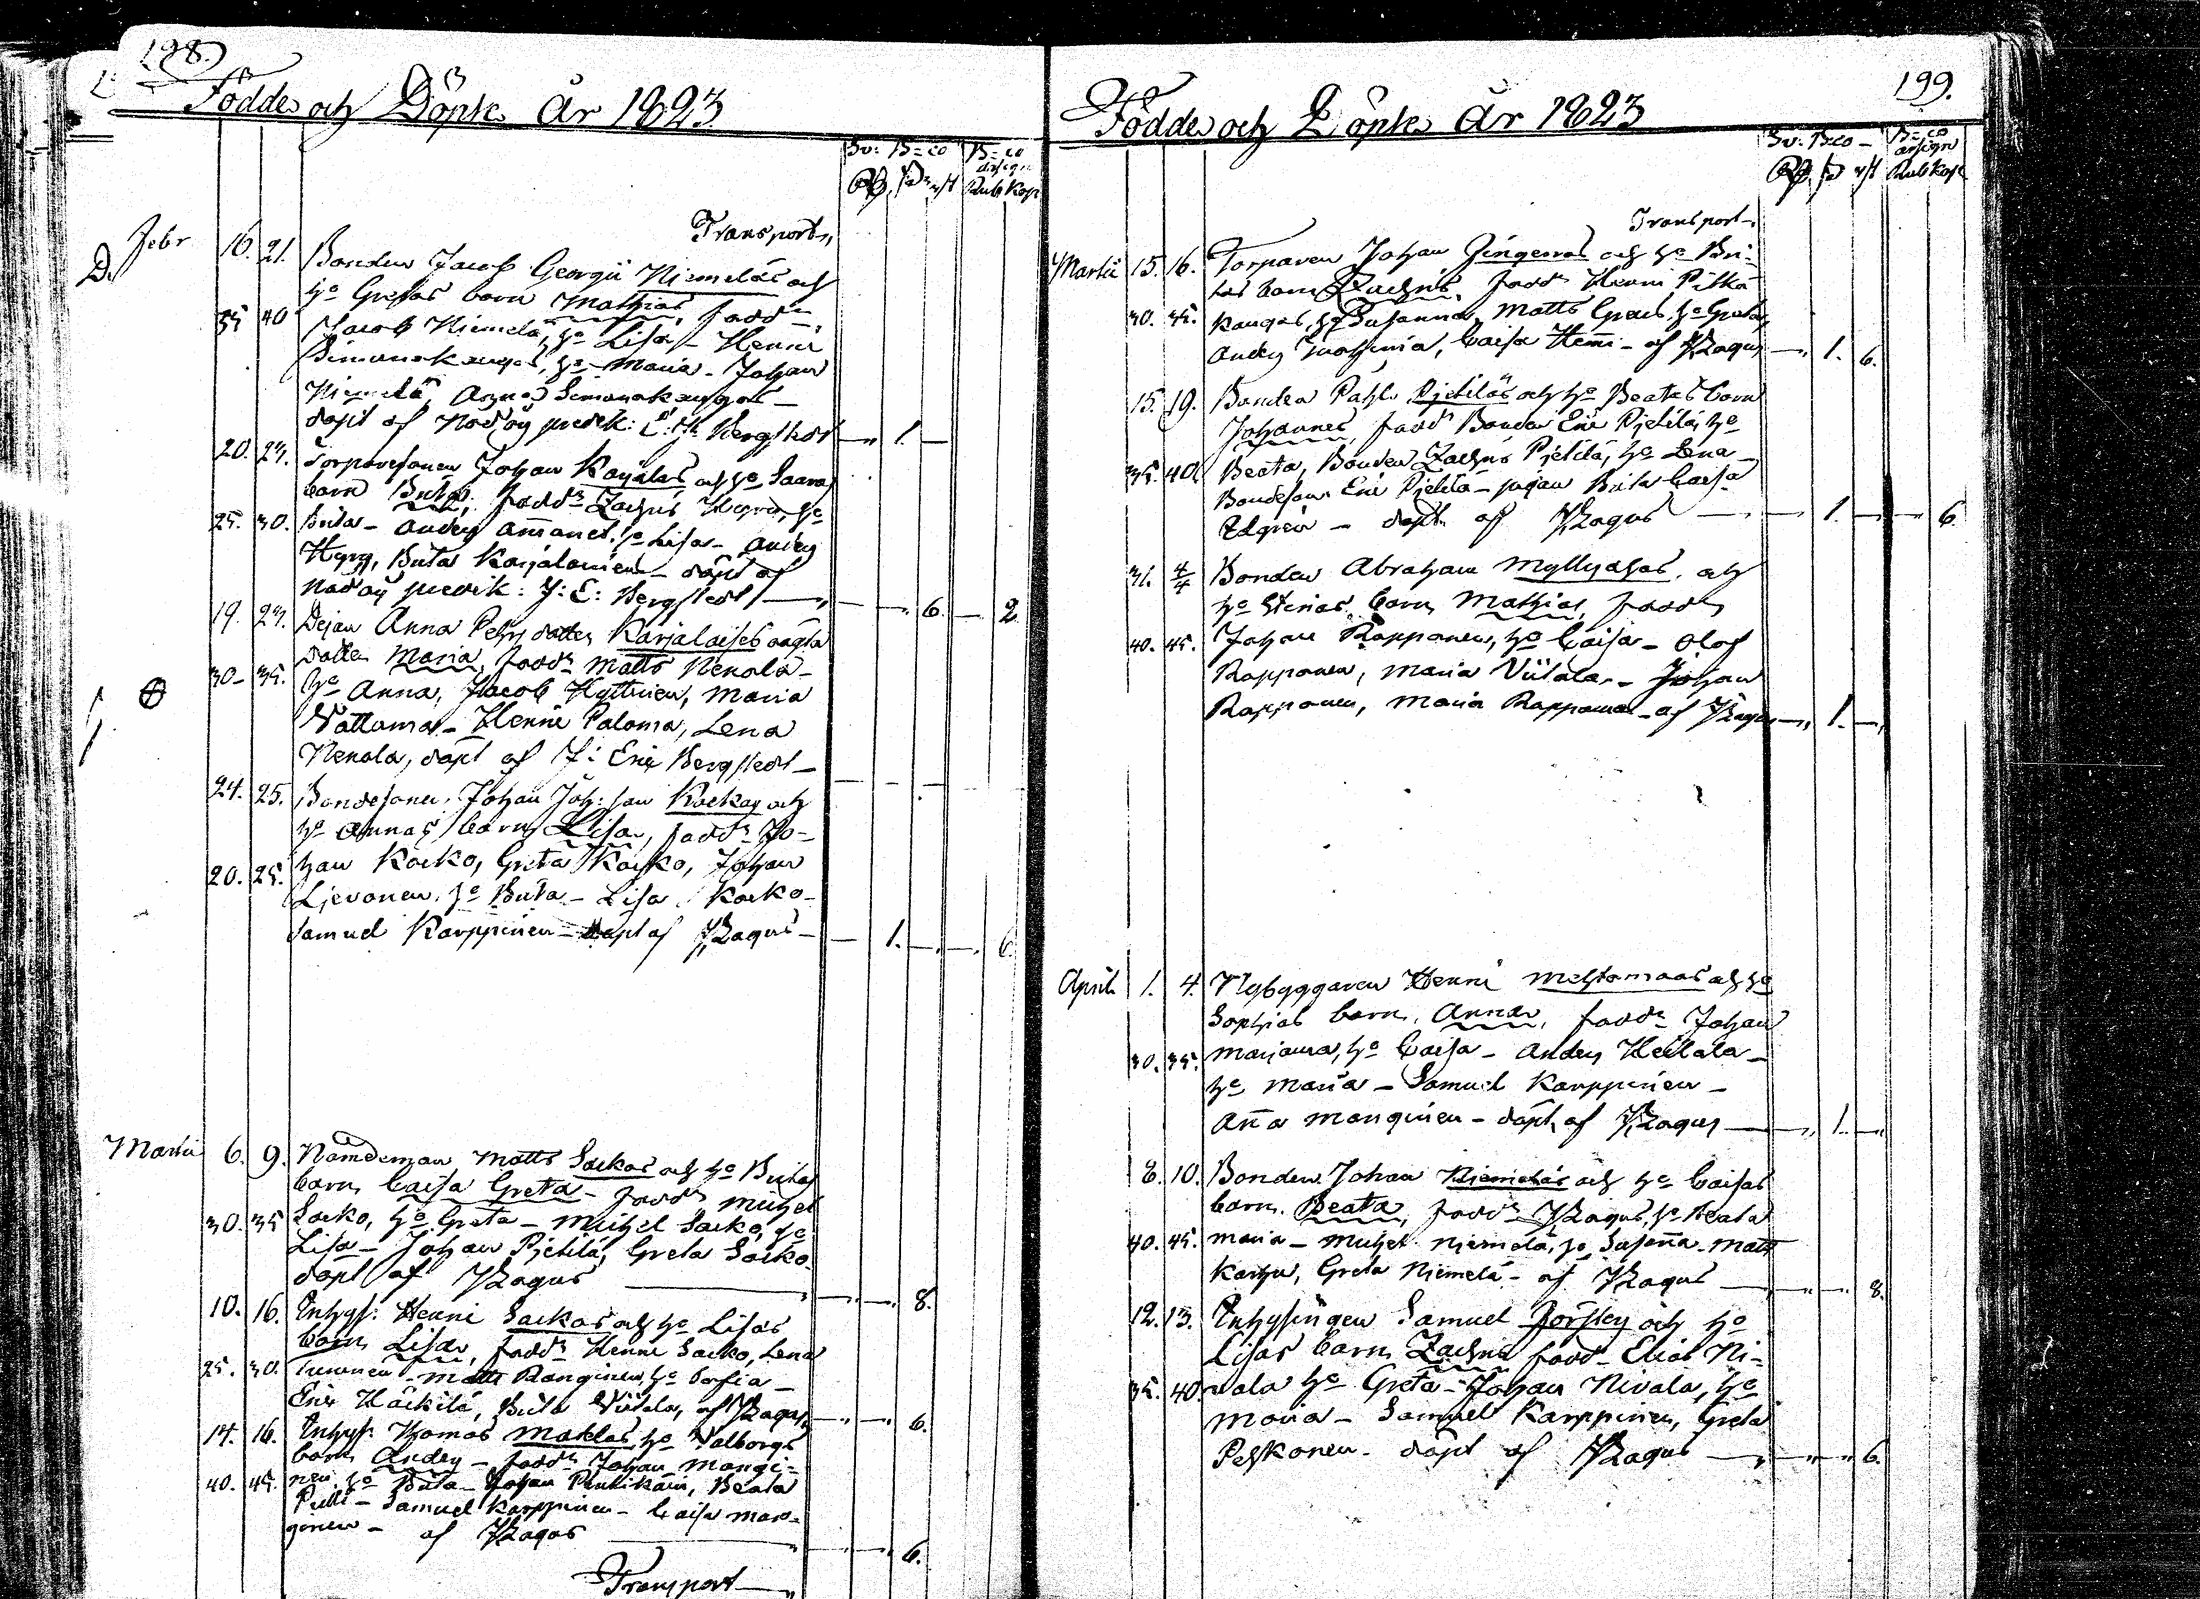 198.
Födde och Döpte År 1823
Sv: B=co B=co
assign
Rd. sk. rst Rub Kop
Transport,,
Febr 16. 21. Bonden Jacob Georgii Niemeläs och
D. hu Gretas barn Mathias, fadd:
35 40 Jacob Niemelä, hu Lisa - Henric
Simonakangas, hu Maria - Johan
Niemelä, Agnes Simonakangas -
döpt af Nådåg predik: E: Bergstedt — 1. —
20. 23. Torparesonen Johan Karjalas och hu Saaras
barn Brita, fadd Zachris Hyry, hu
25. 30. Brita - Anders Ammanet, hu Lisa - Anders
Hyry, Brita Karjalainen - döpt af
Nådåg predik: J: E: Bergstedt — 6. — 2.
19. 23. Pejan Anna Pehrs dotter Karjalaises oägta
dotter Maria, fadd Matts Nenola -
30 - 35. hu Anna, Jacob Hyttinen, Maria
Vattama - Henric Paloma, Lena
Nenola, döpt af J: Eric Bergstedt -
24. 25. Bondesonen Johan Joh: son Koskos och
hu Annas barn Lisa, fadd Jo-
20. 25. han Koskko, Greta Koskko, Johan
Ljevonen, hu Brita - Lisa Koskko -
Samuel Karppinen - döpt af JZagus - — 1. — 6.
Martii 6. 9. Nämdeman Matts Sarkas och hu Britas
barn Caisa Greta - fadd Michel
30. 35 Sarko, hu Greta - Michel Sarko, hu
Lisa - Johan Pjetilä, Greta Sarko.
döpt af JZagus — 8.
10. 16. Inhys: Henric Sarkas och hu Lisas
barn Lisa, fadd Henric Sarko, Lena
25. 30. Turunen - Matts Ranginen, hu Sofia -
Eric Häikilä, Brita Viitala, af JZagus — 6.
14. 16. Inhys: Thomas Maklas, hu Valborgs
barn Anders - fadd Johan Mangi-
40. 45. nen hu Brita - Johan Pentikäin, Beata
Pulli - Samuel Karppinen - Caisa Man-
ginen - af JZagus — 6.
Transport —
199.
Födde och Döpte År 1823
Sv: B=co B=co
assign
Rd. sk rst Rub Kop
Transport,,
Martii 15. 16. Torparen Johan Jingeros och hu Bri-
tas barn Zachris, fadd Henric Pitkä
30. 35. kangas, hu Susanna, Matts Greus, hu Greta,
Anders Mathinia, Caisa Hemi - af JZagus — 1. 6.
15. 19. Bonden Pahl Pjetiläs och hu Beatas barn
Johannes, fadd Bonden Eric Pjetilä, hu
35. 40. Beata, Bonden Zachris Pjetilä, hu Lena -
Bondeson Eric Pjetilä - pigan Brita Caisa
Edgren - döpt af JZagus — 1. — 6.
31. 4/4 Bonden Abraham Myllyahos, och
hu Stinas barn Mathias, fadd
40. 45. Johan Rapponen, hu Caisa - Olof
Rapponen, Maria Viitala - Johan
Rapponen, Maria Rapponen - af JZagus — 1. —
April 1. 4. Nybyggaren Henric Mehtomaas och hu
Sophias barn, Anna, fadd Johan
30. 35. Marjama, hu Caisa - Anders Heikala -
hu Maria - Samuel Karppinen -
Anna Manginen - döpt af JZagus — 1. —
8. 10. Bonden Johan Niemeläs och hu Caisas
barn. Beata, fadd JZagus, hu Beata
40. 45. Maria - Michel Niemelä, hu Susanna - Matts
Karhu, Greta Niemelä - af JZagus — 8.
12. 13. Inhysingen Samuel Jorsley och hu
Lisas barn Zachris fadd - Elias Ni-
35. 40. vala hu Greta - Johan Nivala, hu
Maria - Samuel Karppinen, Greta
Peskonen - döpt af JZagus — 6.